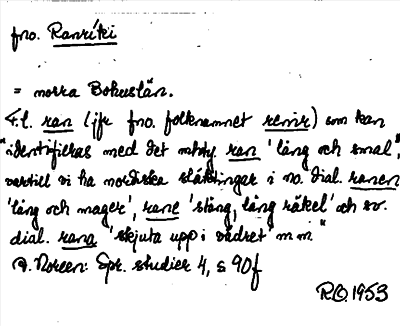 fno. Ranríki
= norra Bohuslän.
F.l. ran (jfr fno. folknamnet renir) som kan
"identifieras med det mhty. ran 'lång och smal",
vartill vi ha nordiska släktingar i no. dial. ranen
'lång och mager', rane 'stång, lång räkel' och sv.
dial. rana 'skjuta upp i vädret' m m"
A. Noreen: Spr. studier 4, s 90f
R.O. 1953